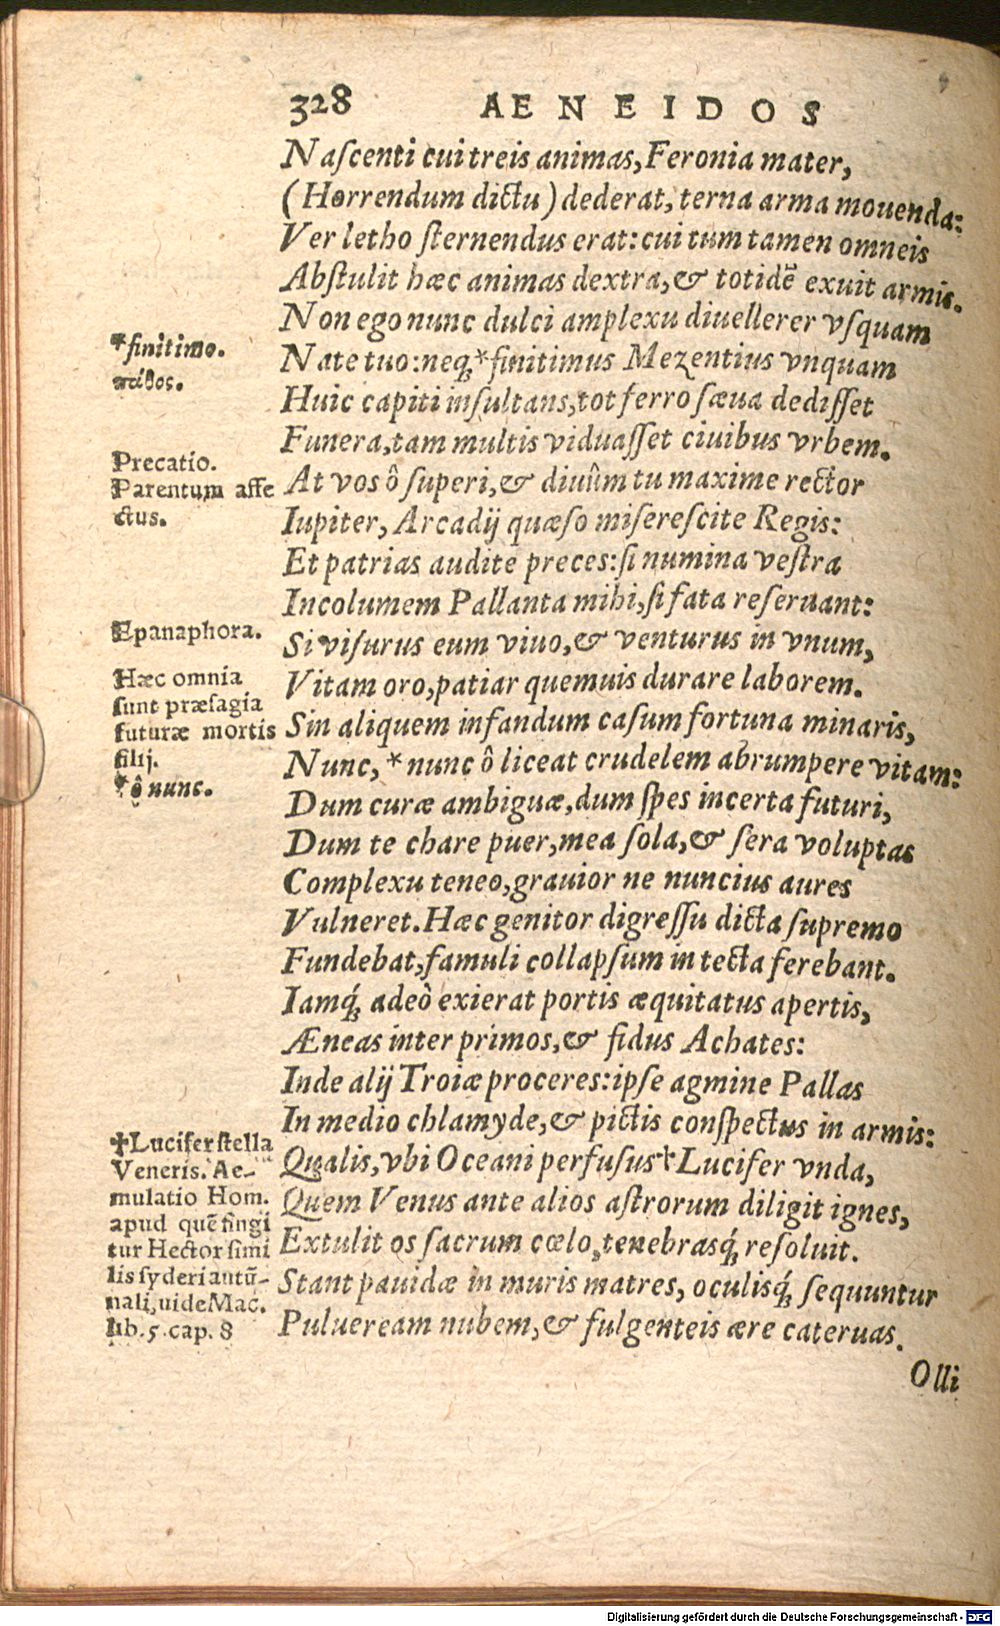 328 AENEIDOS
Naſcenti cui treis animas, Feronia mater,
(Horrendum dictu) dederat, terna arma mouenda:
Ver letho ſternendus erat: cui tum tamen omneis
Abſtulit hæc animas dextra, & totidē exuit armis.
Non ego nunc dulci amplexu diuellerer vſquam
*finitimo.
Nate tuo: neq́; *finitimus Mezentius vnquam
πάθος.
Huic capiti inſultans, tot ferro ſæua dediſſet
Funera, tam multis viduaſſet ciuibus vrbem.
Precatio.
Parentum affe
ctus.
At vos ô ſuperi, & diuûm tu maxime rector
Iupiter, Arcadij quæſo miſereſcite Regis:
Et patrias audite preces: ſi numina veſtra
Incolumem Pallanta mihi, ſi fata reſeruant:
Epanaphora.
Si viſurus eum viuo, & venturus in vnum,
Hæc omnia
ſunt præſagia
futuræ mortis
filij.
*ô nunc.
Vitam oro, patiar quemuis durare laborem.
Sin aliquem infandum caſum fortuna minaris,
Nunc, *nunc ô liceat crudelem abrumpere vitam:
Dum curæ ambiguæ, dum ſpes incerta futuri,
Dum te chare puer, mea ſola, & ſera voluptas
Complexu teneo, grauior ne nuncius aures
Vulneret. Hæc genitor digreſſu dicta ſupremo
Fundebat, famuli collapſum in tecta ferebant.
Iamq́; adeò exierat portis æquitatus apertis,
Æneas inter primos, & fidus Achates:
Inde alij Troiæ proceres: ipſe agmine Pallas
In medio chlamyde, & pictis conſpectus in armis:
✝Lucifer ſtella
Veneris. Ae-
mulatio Hom.
apud quē fingi
tur Hector ſimi
lis ſyderi autū-
nali, uide Mac.
lib. 5. cap. 8
Qualis, vbi Oceani perfuſus ✝Lucifer vnda,
Quem Venus ante alios aſtrorum diligit ignes,
Extulit os ſacrum cœlo, tenebrasq́; reſoluit.
Stant pauidæ in muris matres, oculisq́; ſequuntur
Pulueream nubem, & fulgenteis ære cateruas.
Olli
Digitalisierung gefördert durch die Deutsche Forschungsgemeinschaft - DFG